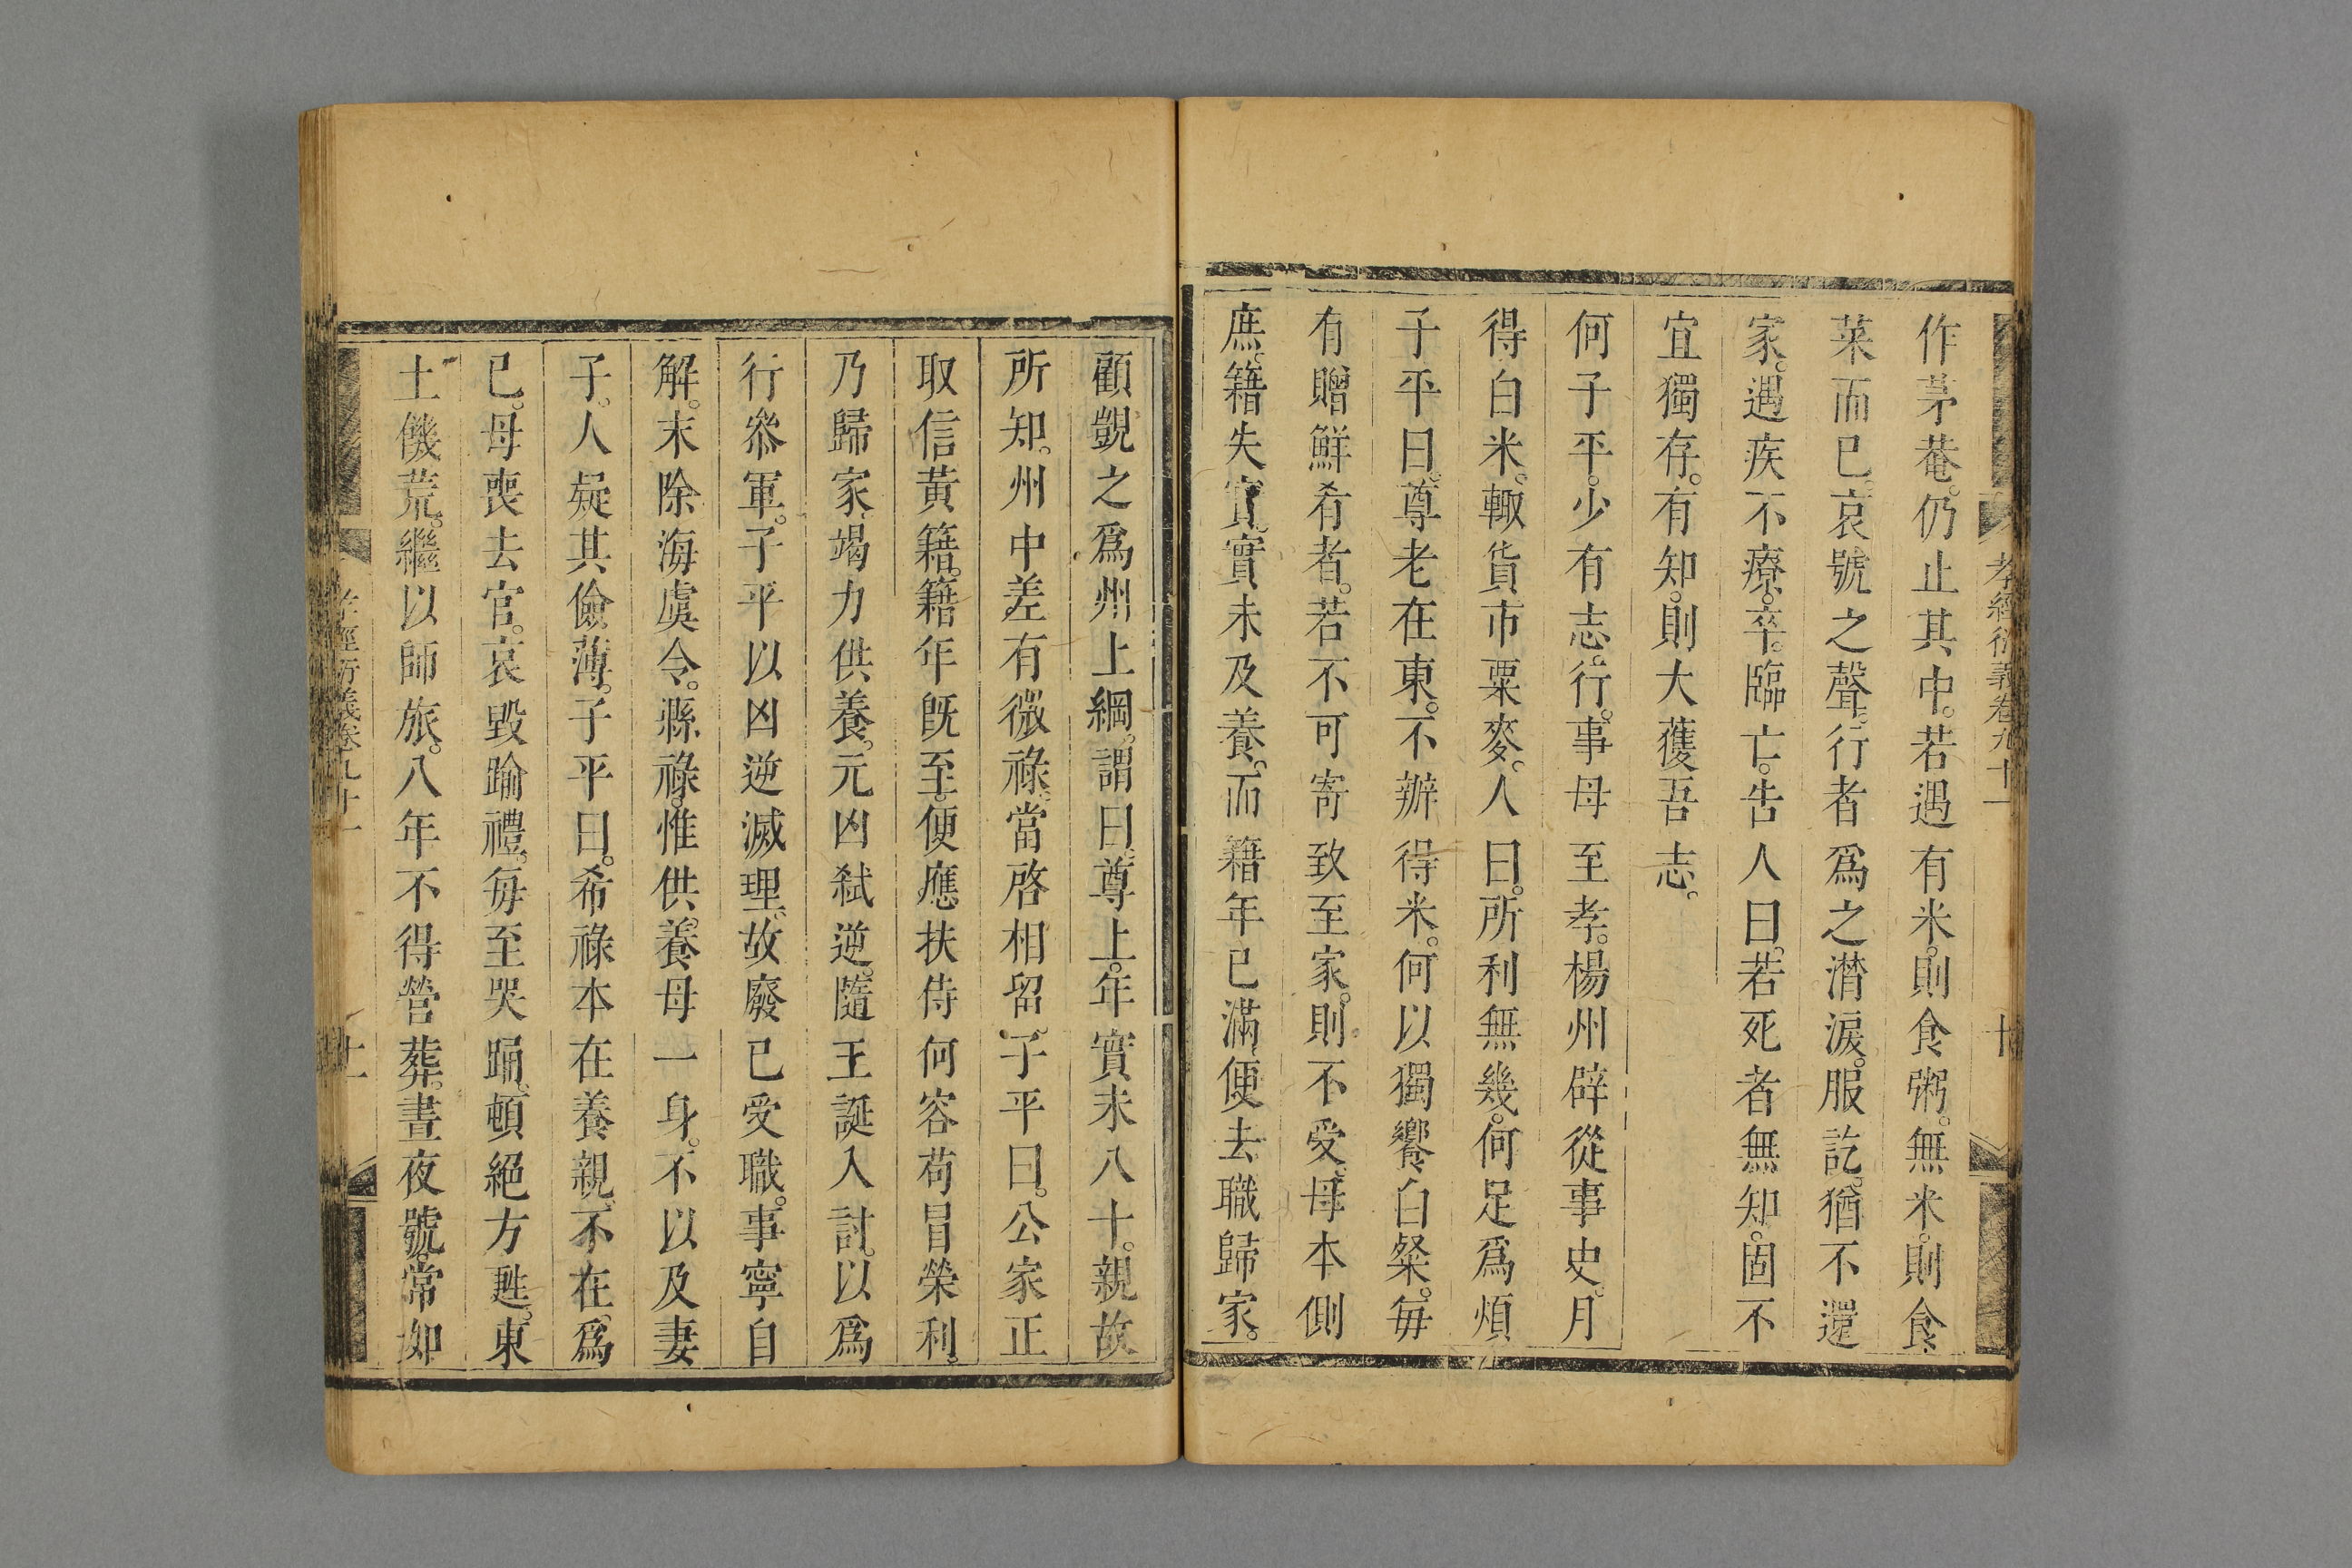 孝經衍義卷九十一
十
作茅菴。仍止其中。若遇有米。則食粥。無米。則食
菜而已。哀號之聲。行者爲之潸淚。服訖。猶不還
家。遇疾不療。卒。臨亡。告人曰。若死者無知。固不
宜獨存。有知。則大獲吾志。
何子平。少有志行。事母至孝。楊州辟從事史。月
得白米。輙貨市粟麥。人曰。所利無幾。何足爲煩
子平曰。尊老在東。不辦得米。何以獨饗白粲。毎
有贈鮮肴者。若不可寄致至家。則不受。母本側
庶。籍失實。實未及養。而籍年已滿。便去職歸家。
顧覬之爲州上綱。謂曰。尊上。年實未八十。親故
所知。州中差有微祿。當啓相留。子平曰。公家正
取信黃籍。籍年既至。便應扶侍何容苟冒榮利。
乃歸家竭力供養。元凶弑逆。隨王誕入討。以爲
行叅軍。子平以凶逆滅理。故廢已受職。事寧自
解。末除海虞令。縣祿。惟供養母一身。不以及妻
子。人疑其儉薄。子平曰。希祿本在養親。不在爲
已。母喪去官。哀毀踰禮。毎至哭踊。頓絕方甦。東
土饑荒。繼以師旅。八年不得營葬。晝夜號。常如
孝經衍義卷九十一
十一